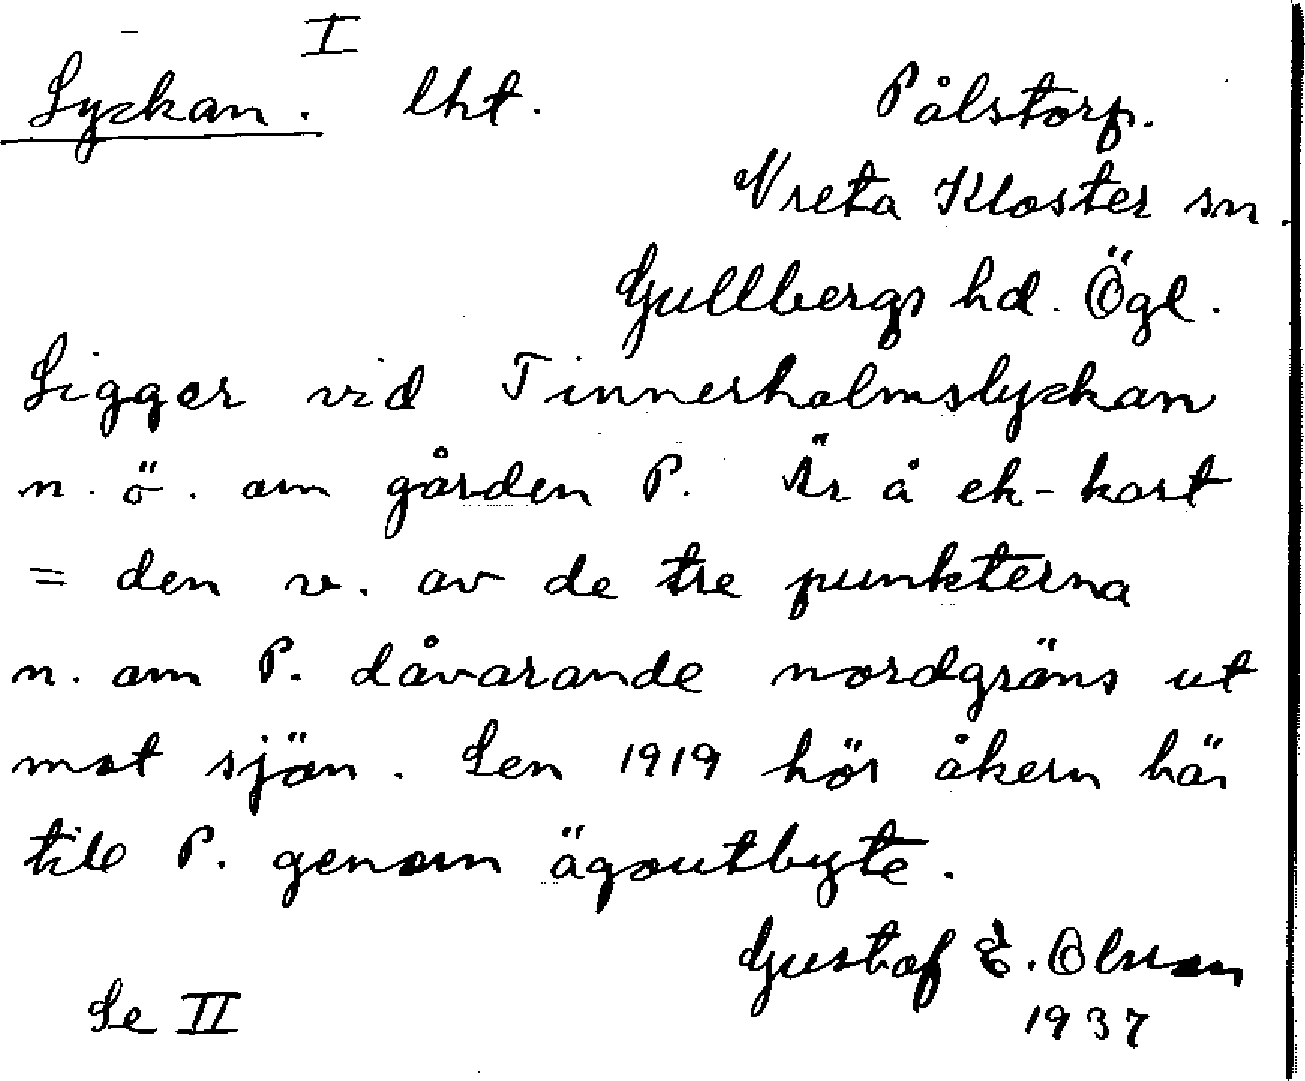 I
Lyckan. lht. Pålstorp.
Vreta Kloster sn.
Gullbergs hd. Ögl.
Ligger vid Tinnerholmslyckan
n. ö. om gården P. Är å ek-kart
= den v. av de tre punkterna
n. om P. dåvarande nordgräns ut
mot sjön. Sen 1919 hör åkern här
till P. genom ägoutbyte.
Gustaf E. Olsson
Se II 1937